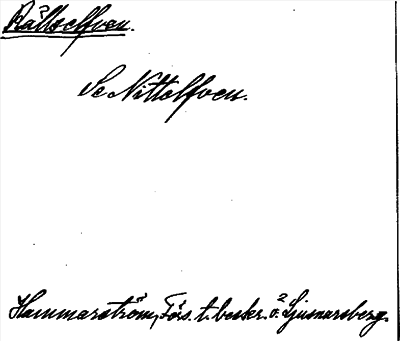 Rällselfven.
Se Nittelfven.
Hammarström, Förs. t. beskr. ö. Ljusnarsberg.